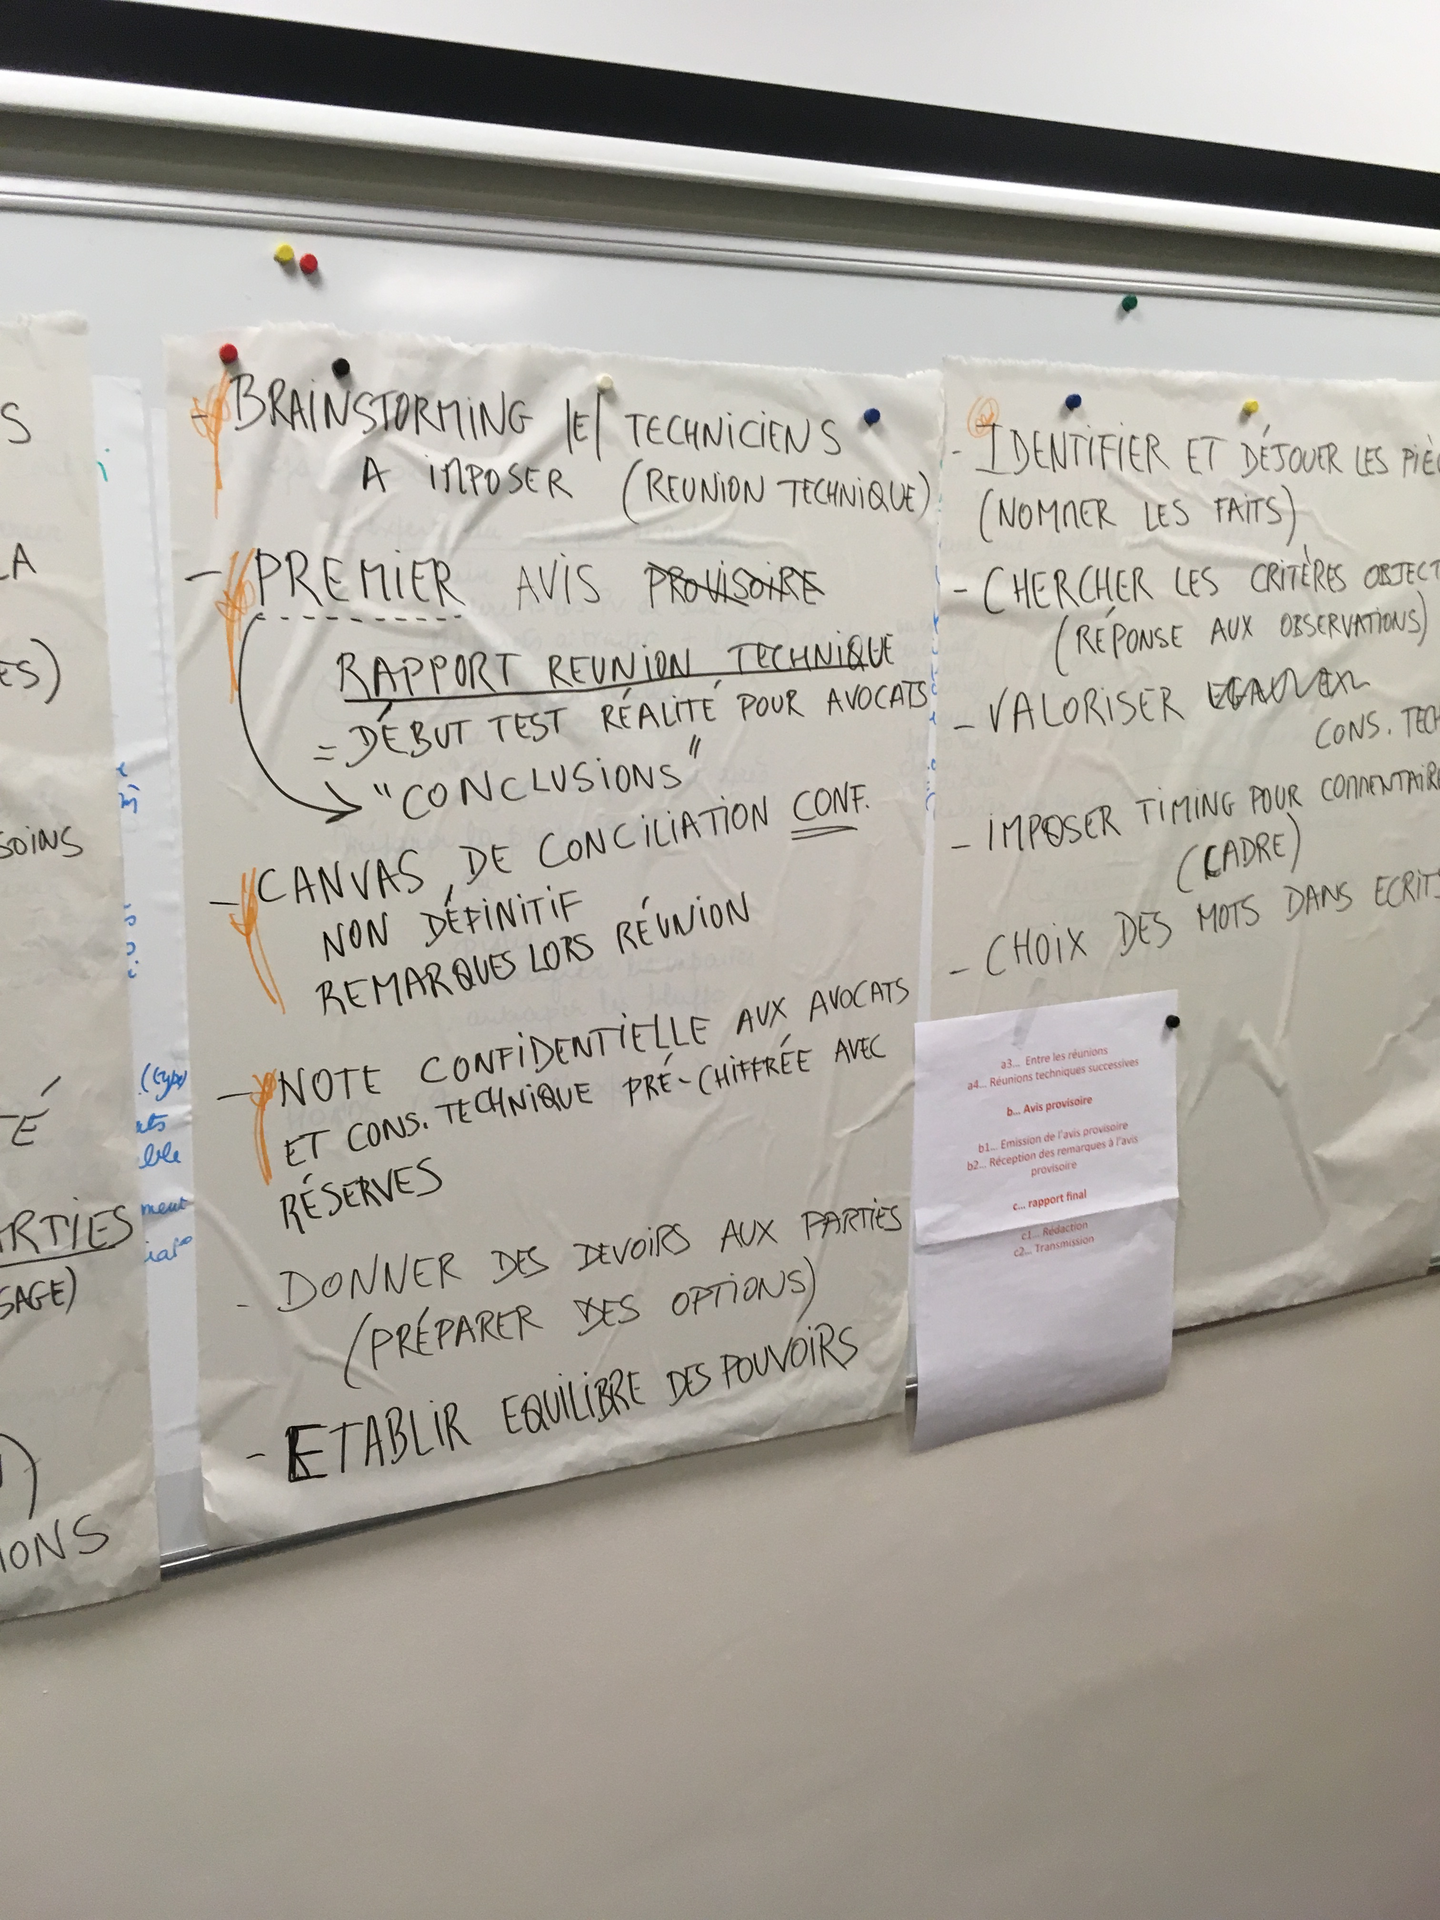 S
LA
ES)
SOINS
TÉ
ARTIES
SAGE)
)
IONS
(type
ment
- BRAINSTORMING |E| TECHNICIENS
A IMPOSER (REUNION TECHNIQUE)
- PREMIER AVIS PROVISOIRE
RAPPORT REUNION TECHNIQUE
= DÉBUT TEST RÉALITÉ POUR AVOCATS
"CONCLUSIONS"
- CANVAS DE CONCILIATION CONF.
NON DÉFINITIF
REMARQUES LORS RÉUNION
- NOTE CONFIDENTIELLE AUX AVOCATS
ET CONS. TECHNIQUE PRÉ-CHIFFRÉE AVEC
RÉSERVES
- DONNER DES DEVOIRS AUX PARTIES
(PRÉPARER DES OPTIONS)
- ETABLIR EQUILIBRE DES POUVOIRS
- IDENTIFIER ET DÉJOUER LES PIÈ
(NOMMER LES FAITS)
- CHERCHER LES CRITÈRES OBJECT
(RÉPONSE AUX OBSERVATIONS)
- VALORISER
CONS. TECH
- IMPOSER TIMING POUR COMMENTAIRE
(CADRE)
- CHOIX DES MOTS DANS ECRITS
a3... Entre les réunions
a4... Réunions techniques successives
b... Avis provisoire
b1... Emission de l'avis provisoire
b2... Réception des remarques à l'avis
provisoire
c... rapport final
c1... Rédaction
c2... Transmission